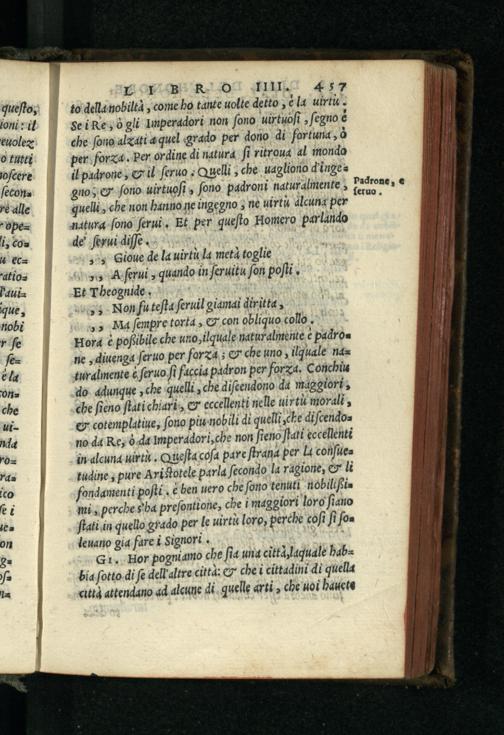 LIBRO IIII. 457
to della nobiltà, come ho tante uolte detto, è la uirtù.
Se i Re, ò gli Imperadori non sono uirtuosi, segno è
che sono alzati a quel grado per dono di fortuna, ò
per forza. Per ordine di natura si ritroua al mondo
il padrone, & il seruo. Quelli, che uagliono d'inge=
gno, & sono uirtuosi, sono padroni naturalmente,
quelli, che non hanno ne ingegno, ne uirtù alcuna per
natura sono serui. Et per questo Homero parlando
de' serui disse.
,, Gioue de la uirtù la metà toglie
,, A serui, quando in seruitu son posti.
Et Theognide.
,, Non fu testa seruil giamai diritta,
,, Ma sempre torta, & con obliquo collo.
Hora è possibile che uno, ilquale naturalmente è padro=
ne, diuenga seruo per forza; & che uno, ilquale na=
turalmente è seruo si faccia padron per forza. Conchiu
do adunque, che quelli, che discendono da maggiori,
che sieno stati chiari, & eccellenti nelle uirtù morali,
& cotemplatiue, sono piu nobili di quelli, che discendo=
no da Re, ò da Imperadori, che non sieno stati eccellenti
in alcuna uirtù. Questa cosa pare strana per la consue=
tudine, pure Aristotele parla secondo la ragione, & li
fondamenti posti. è ben uero che sono tenuti nobilißi=
mi, perche s'ha presontione, che i maggiori loro siano
stati in quello grado per le uirtù loro, perche cosi si so=
leuano gia fare i Signori.
GI. Hor pogniamo che sia una città, laquale hab=
bia sotto di se dell'altre città: & che i cittadini di quella
città attendano ad alcune di quelle arti, che uoi hauete
Padrone, e
seruo.
questo,
ioni: il
euolez
o tutti
noscere
secon=
re alle
r ope=
li, co=
u ec=
ratio=
l'aui=
ique,
nobi
r se
se=
è la
con=
che
ui=
nda
ro=
ra=
ico
se i
ue=
on
g=
os=
n=